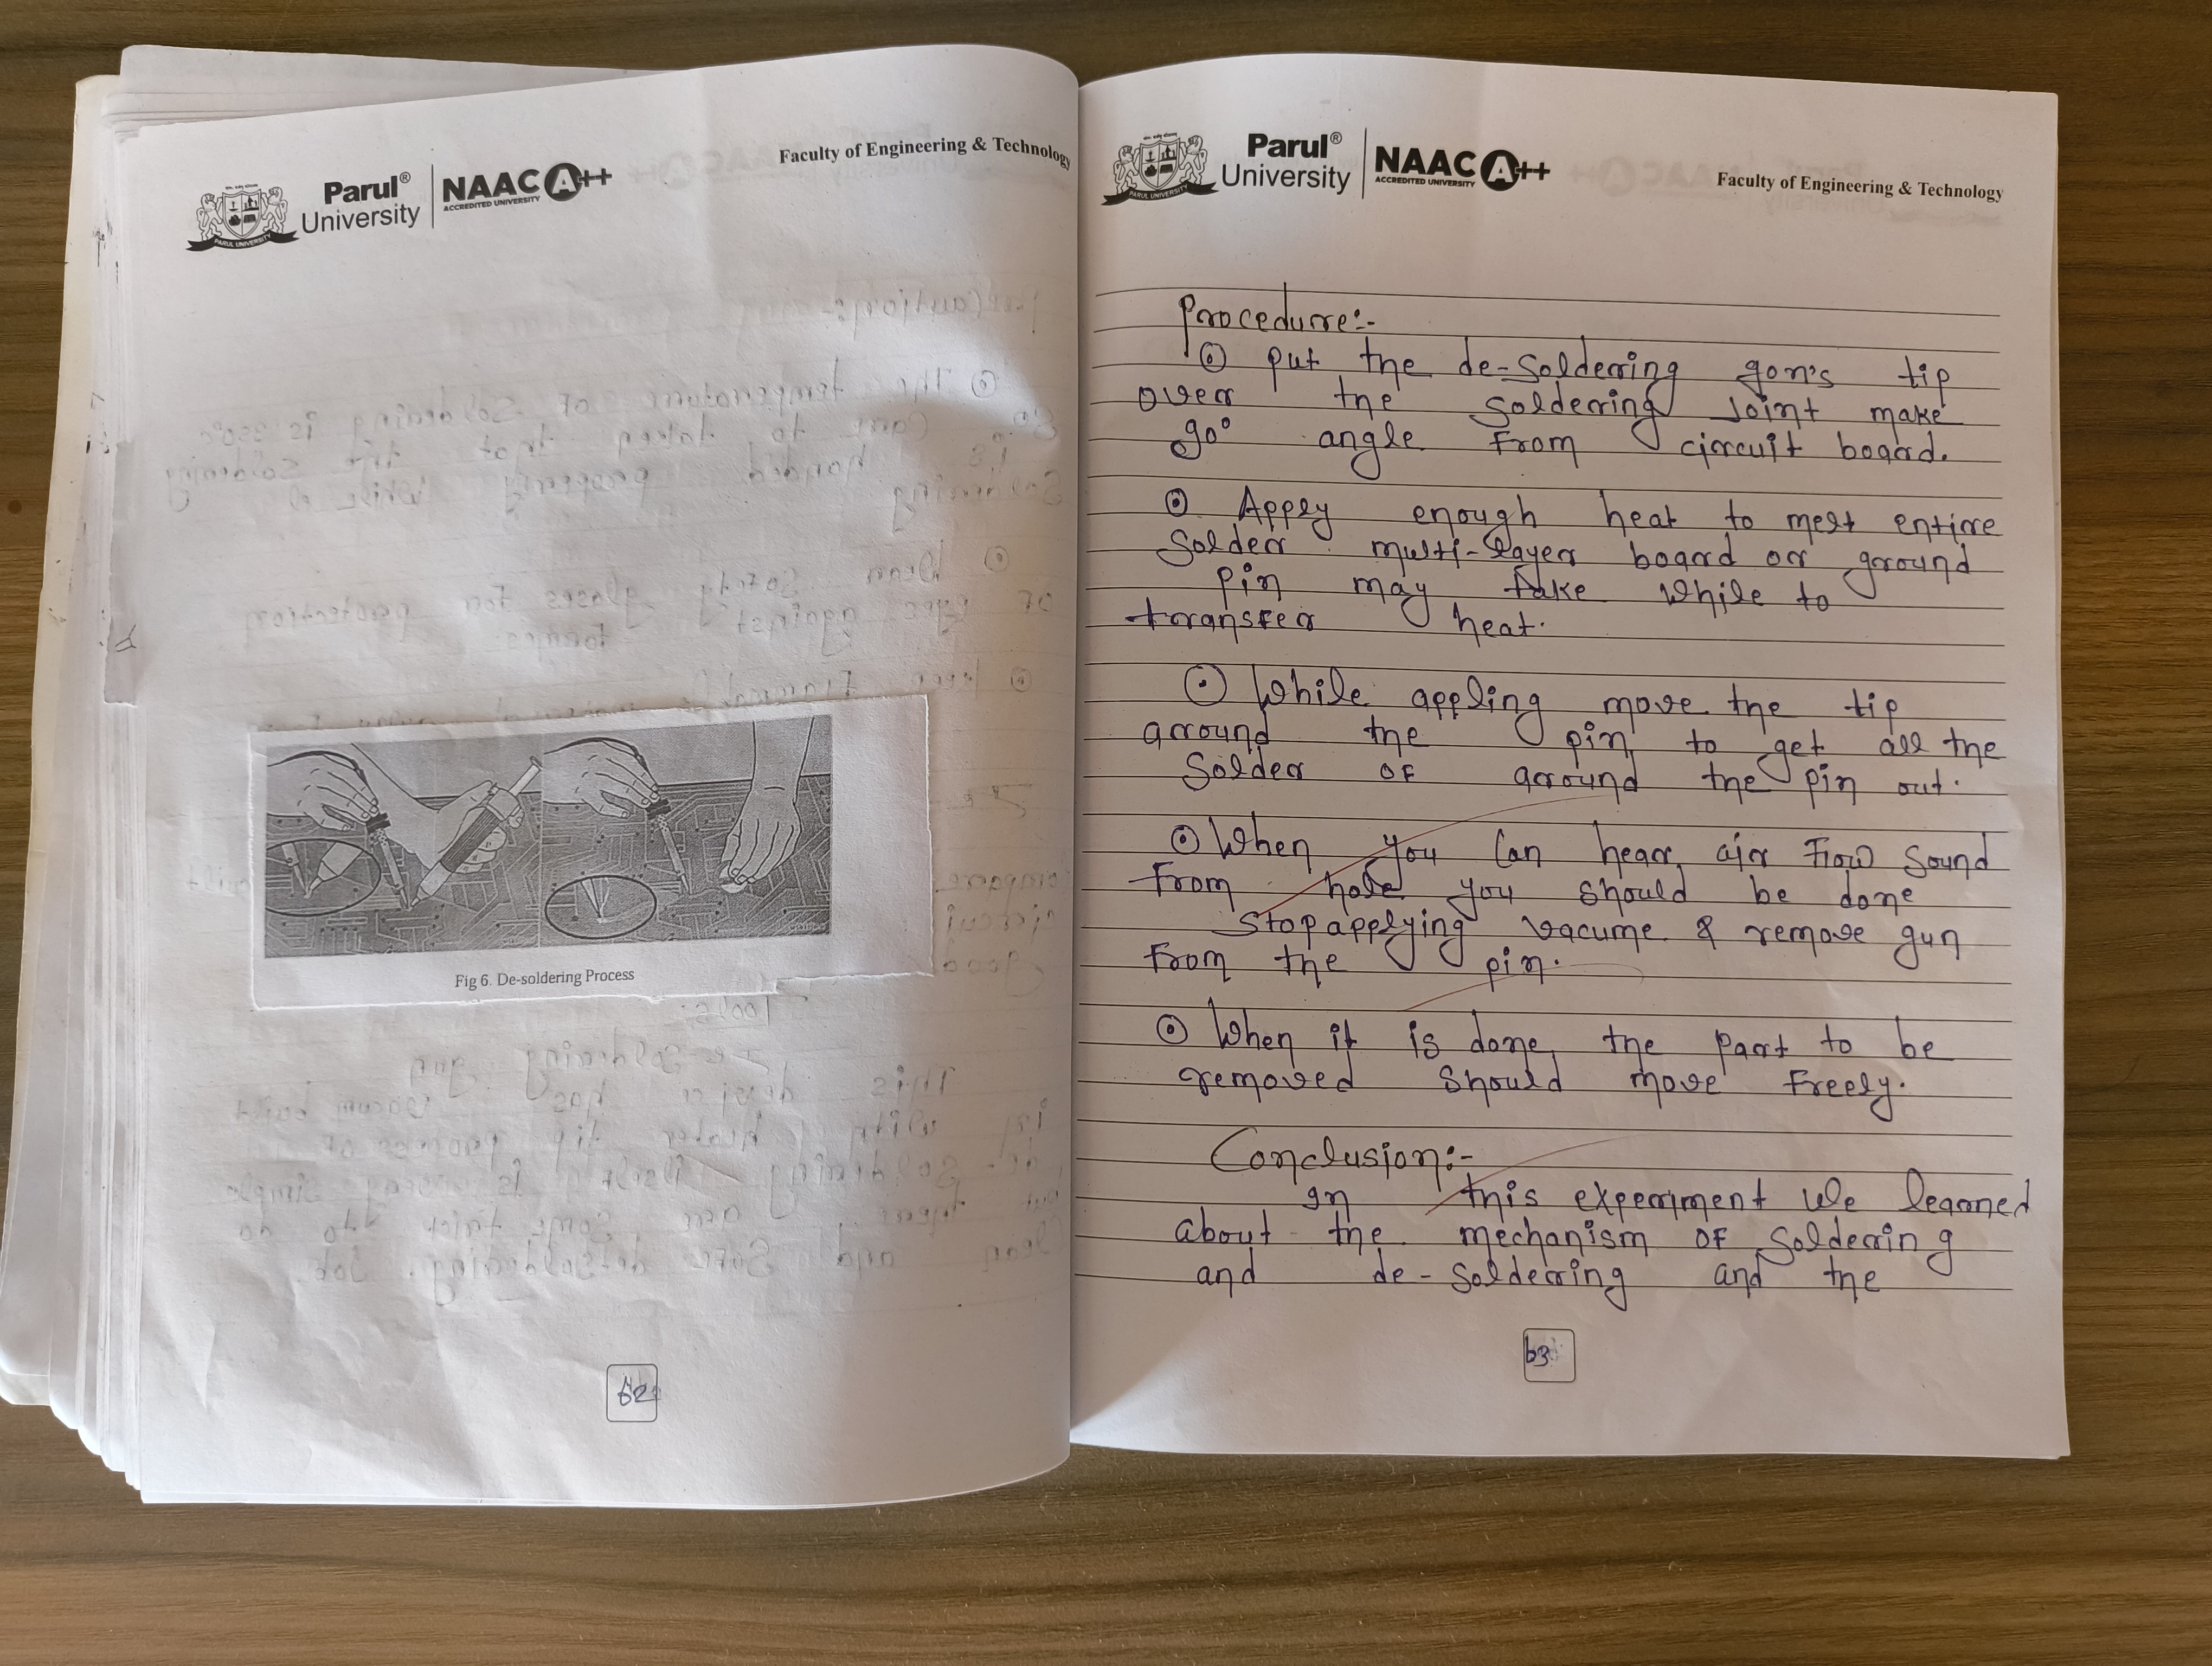 Parul®
University
NAAC A++
ACCREDITED UNIVERSITY
Faculty of Engineering & Technology
PARUL UNIVERSITY
Fig 6. De-soldering Process
62
Parul®
University
NAAC A++
ACCREDITED UNIVERSITY
Faculty of Engineering & Technology
PARUL UNIVERSITY
Procedure:-
put the de-soldering gon's tip
over the soldering Joint make
90° angle from circuit board.
Apply enough heat to melt entire
Solder multi-layer board or ground
pin may take while to
transfer heat.
While appling move the tip
around the pin to get all the
Solder of around the pin out.
When you Can hear air flow sound
From hole you should be done
Stop applying vacume & remove gun
From the pin.
When it is done, the part to be
removed should move freely.
Conclusion:-
In this experiment we learned
about the mechanism of soldering
and de-soldering and the
63